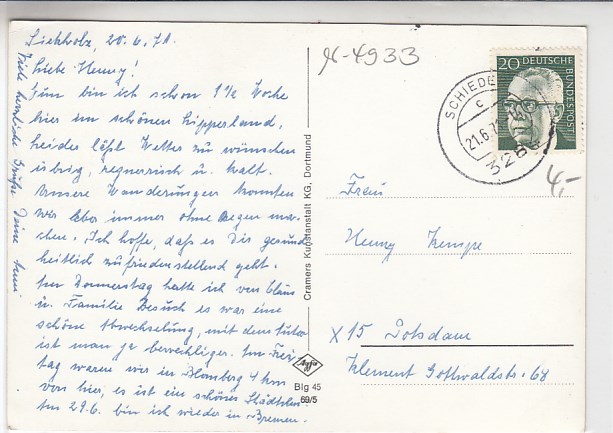 Siekholz, 20.6.71.
Liebe Henny!
Nun bin ich schon 1½ Woche
hier im schönen Lipperland,
leider läßt Wetter zu wünschen
übrig, regnerisch u. kalt.
Unsere Wanderungen konnten
wir aber immer ohne Regen ma-
chen. Ich hoffe, daß es Dir gesund
heitlich zufriedenstellend geht.
Am Donnerstag hatte ich von
u. Familie Besuch es war eine
schöne Abwechselung, mit dem Auto
ist man ja beweglicher. Am Frei
tag waren wir in Blomberg 4 km
von hier, es ist ein schönes Städtchen.
Am 29.6. bin ich wieder in Bremen.
Viele herzliche Grüße Deine Anni
Cramers Kunstanstalt KG, Dortmund
Agfa
Blg 45
69/5
4933
SCHIEDE
c
21.6.71
328
20 DEUTSCHE
BUNDESPOST
4,-
Frau
Henny Kempe
X 15 Potsdam
Klement Gottwaldstr. 68